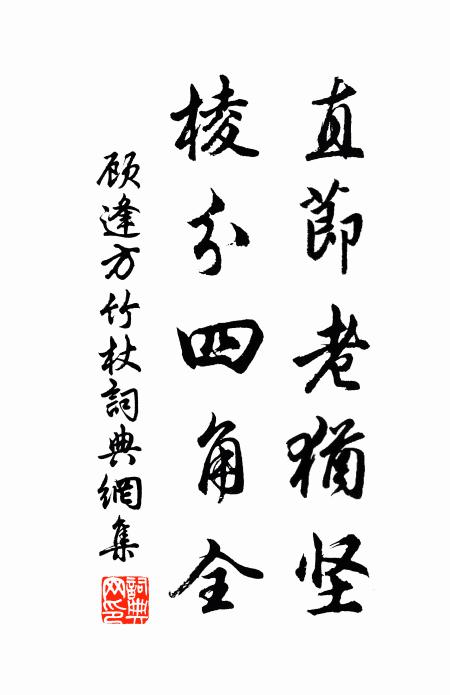 直節老猶坚
棱分四角全
顾逢方竹杖詞典網集
詞典網印